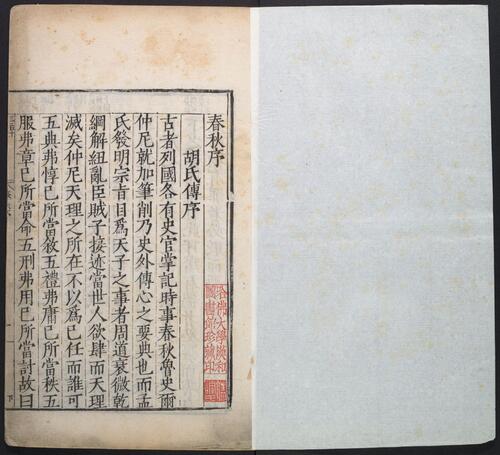 春秋序
胡氏傳序
古者列國各有史官掌記時事春秋魯史爾
仲尼就加筆削乃史外傳心之要典也而孟
氏發明宗旨目爲天子之事者周道衰微乾
綱解紐亂臣賊子接迹當世人欲肆而天理
滅矣仲尼天理之所在不以爲已任而誰可
五典弗惇已所當敘五禮弗庸已所當秩五
服弗章已所當命五刑弗用已所當討故曰
哈佛大學漢和
圖書館珍藏印